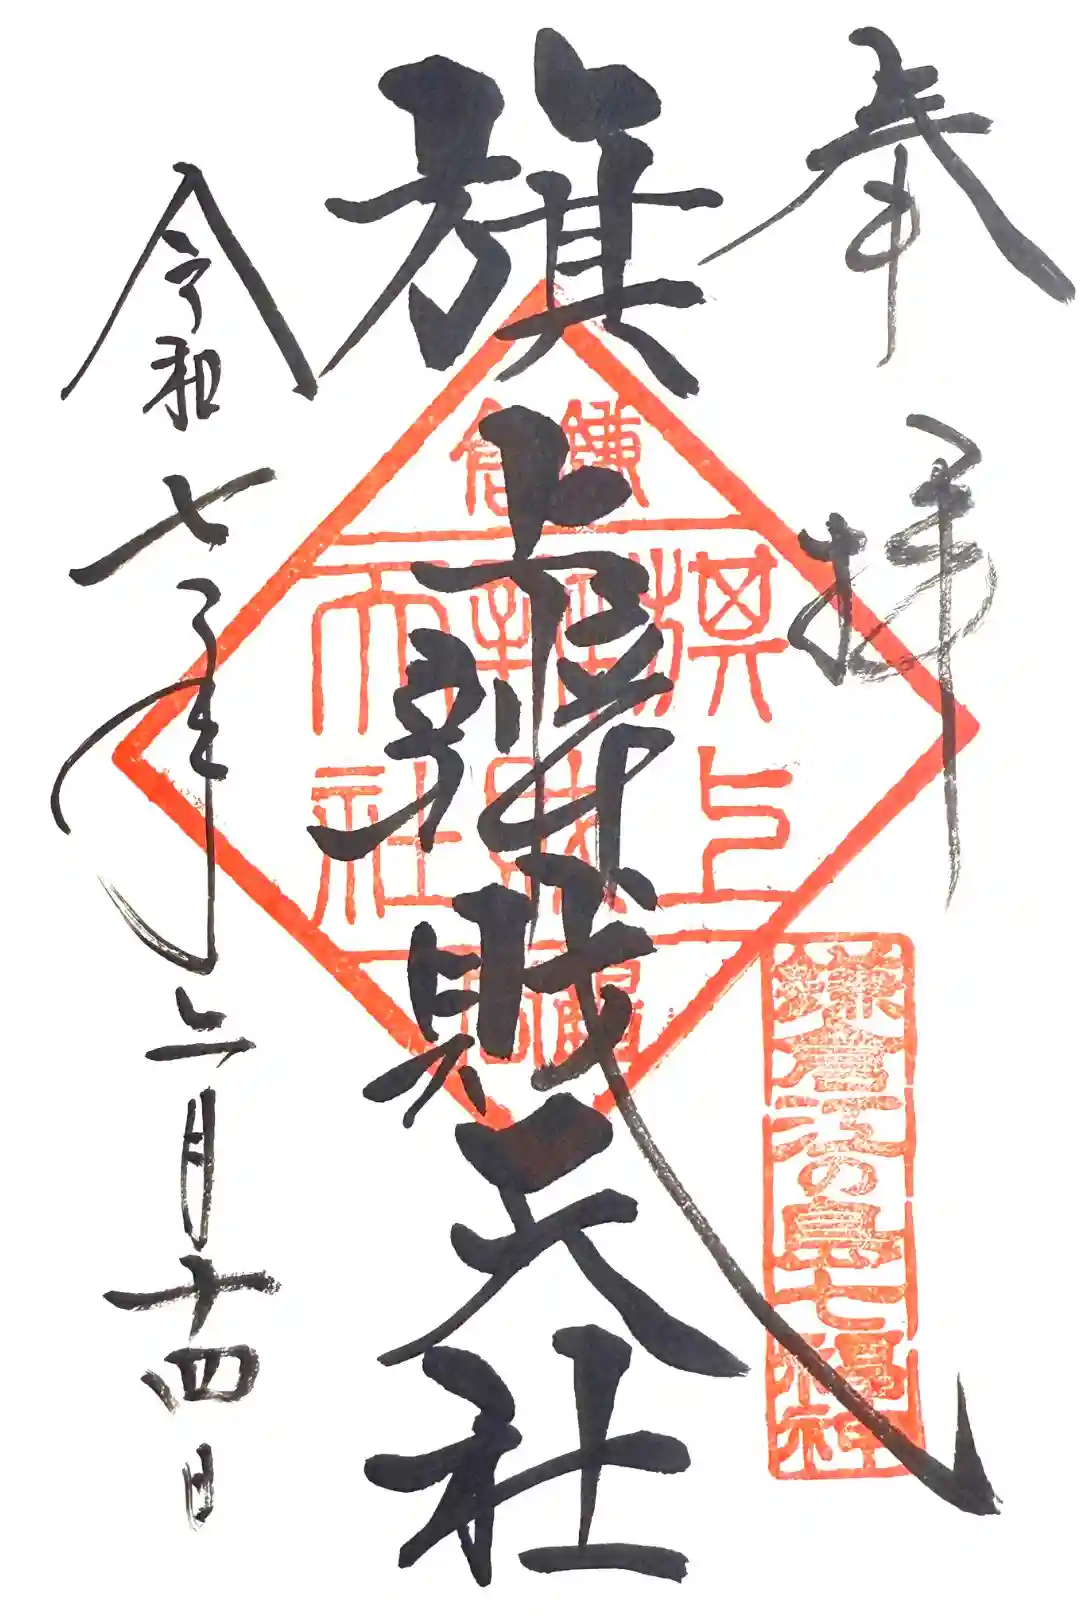 奉拝
鎌倉江の島七福神
旗上辨財天社
鎌倉
旗上
辨財
天社
令和七年二月十四日